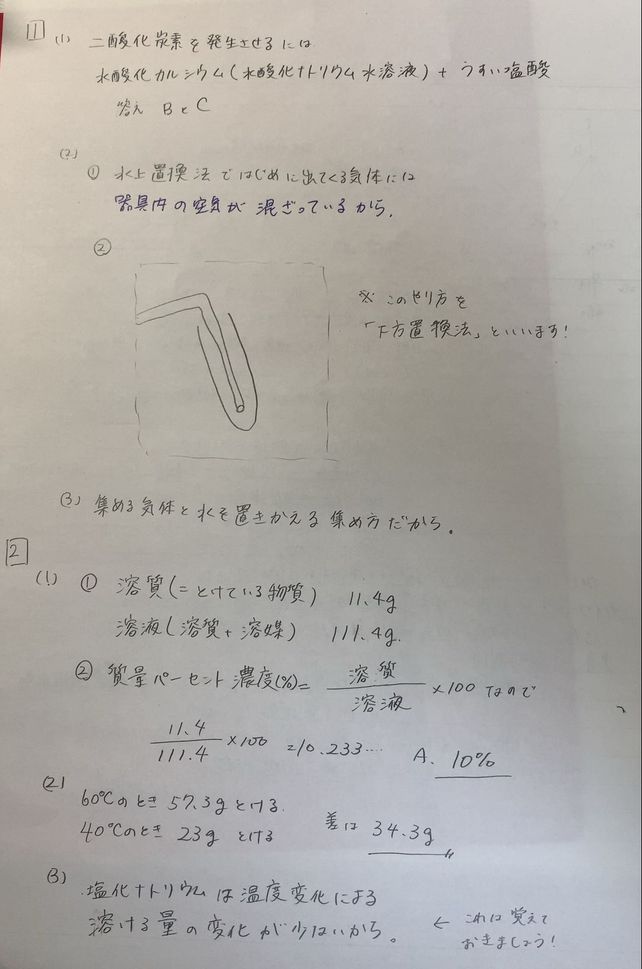 1
(1) 二酸化炭素を発生させるには
水酸化カルシウム(水酸化ナトリウム水溶液)+うすい塩酸
答え BとC
(2)
① 水上置換法ではじめに出てくる気体には
器具内の空気が混ざっているから。
②
※このやり方を
「下方置換法」といいます!
(3) 集める気体と水を置きかえる集め方だから。
2
(1) ① 溶質(=とけている物質) 11.4g
溶液(溶質+溶媒) 111.4g.
② 質量パーセント濃度(%)= 溶質/溶液 ×100 なので
11.4/111.4 ×100 =10.233… A. 10%
(2) 60℃のとき 57.3g とける.
40℃のとき 23g とける 差は 34.3g
(3) 塩化ナトリウムは温度変化による
溶ける量の変化が少ないから。 ← これは覚えて
おきましょう!